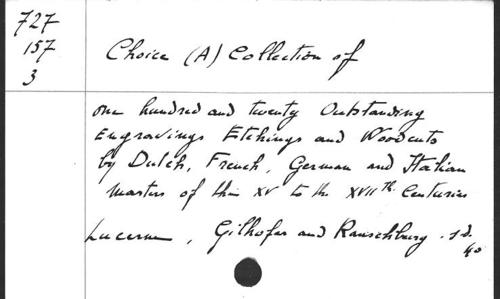 727
157
3
Choice (A) Collection of
one hundred and twenty Outstanding
Engravings Etchings and Woodcuts
by Dutch, French, German and Italian
Masters of the XV to the XVIIth Centuries
Lucerne, Gilhofer and Ranschburg. s.d.
40